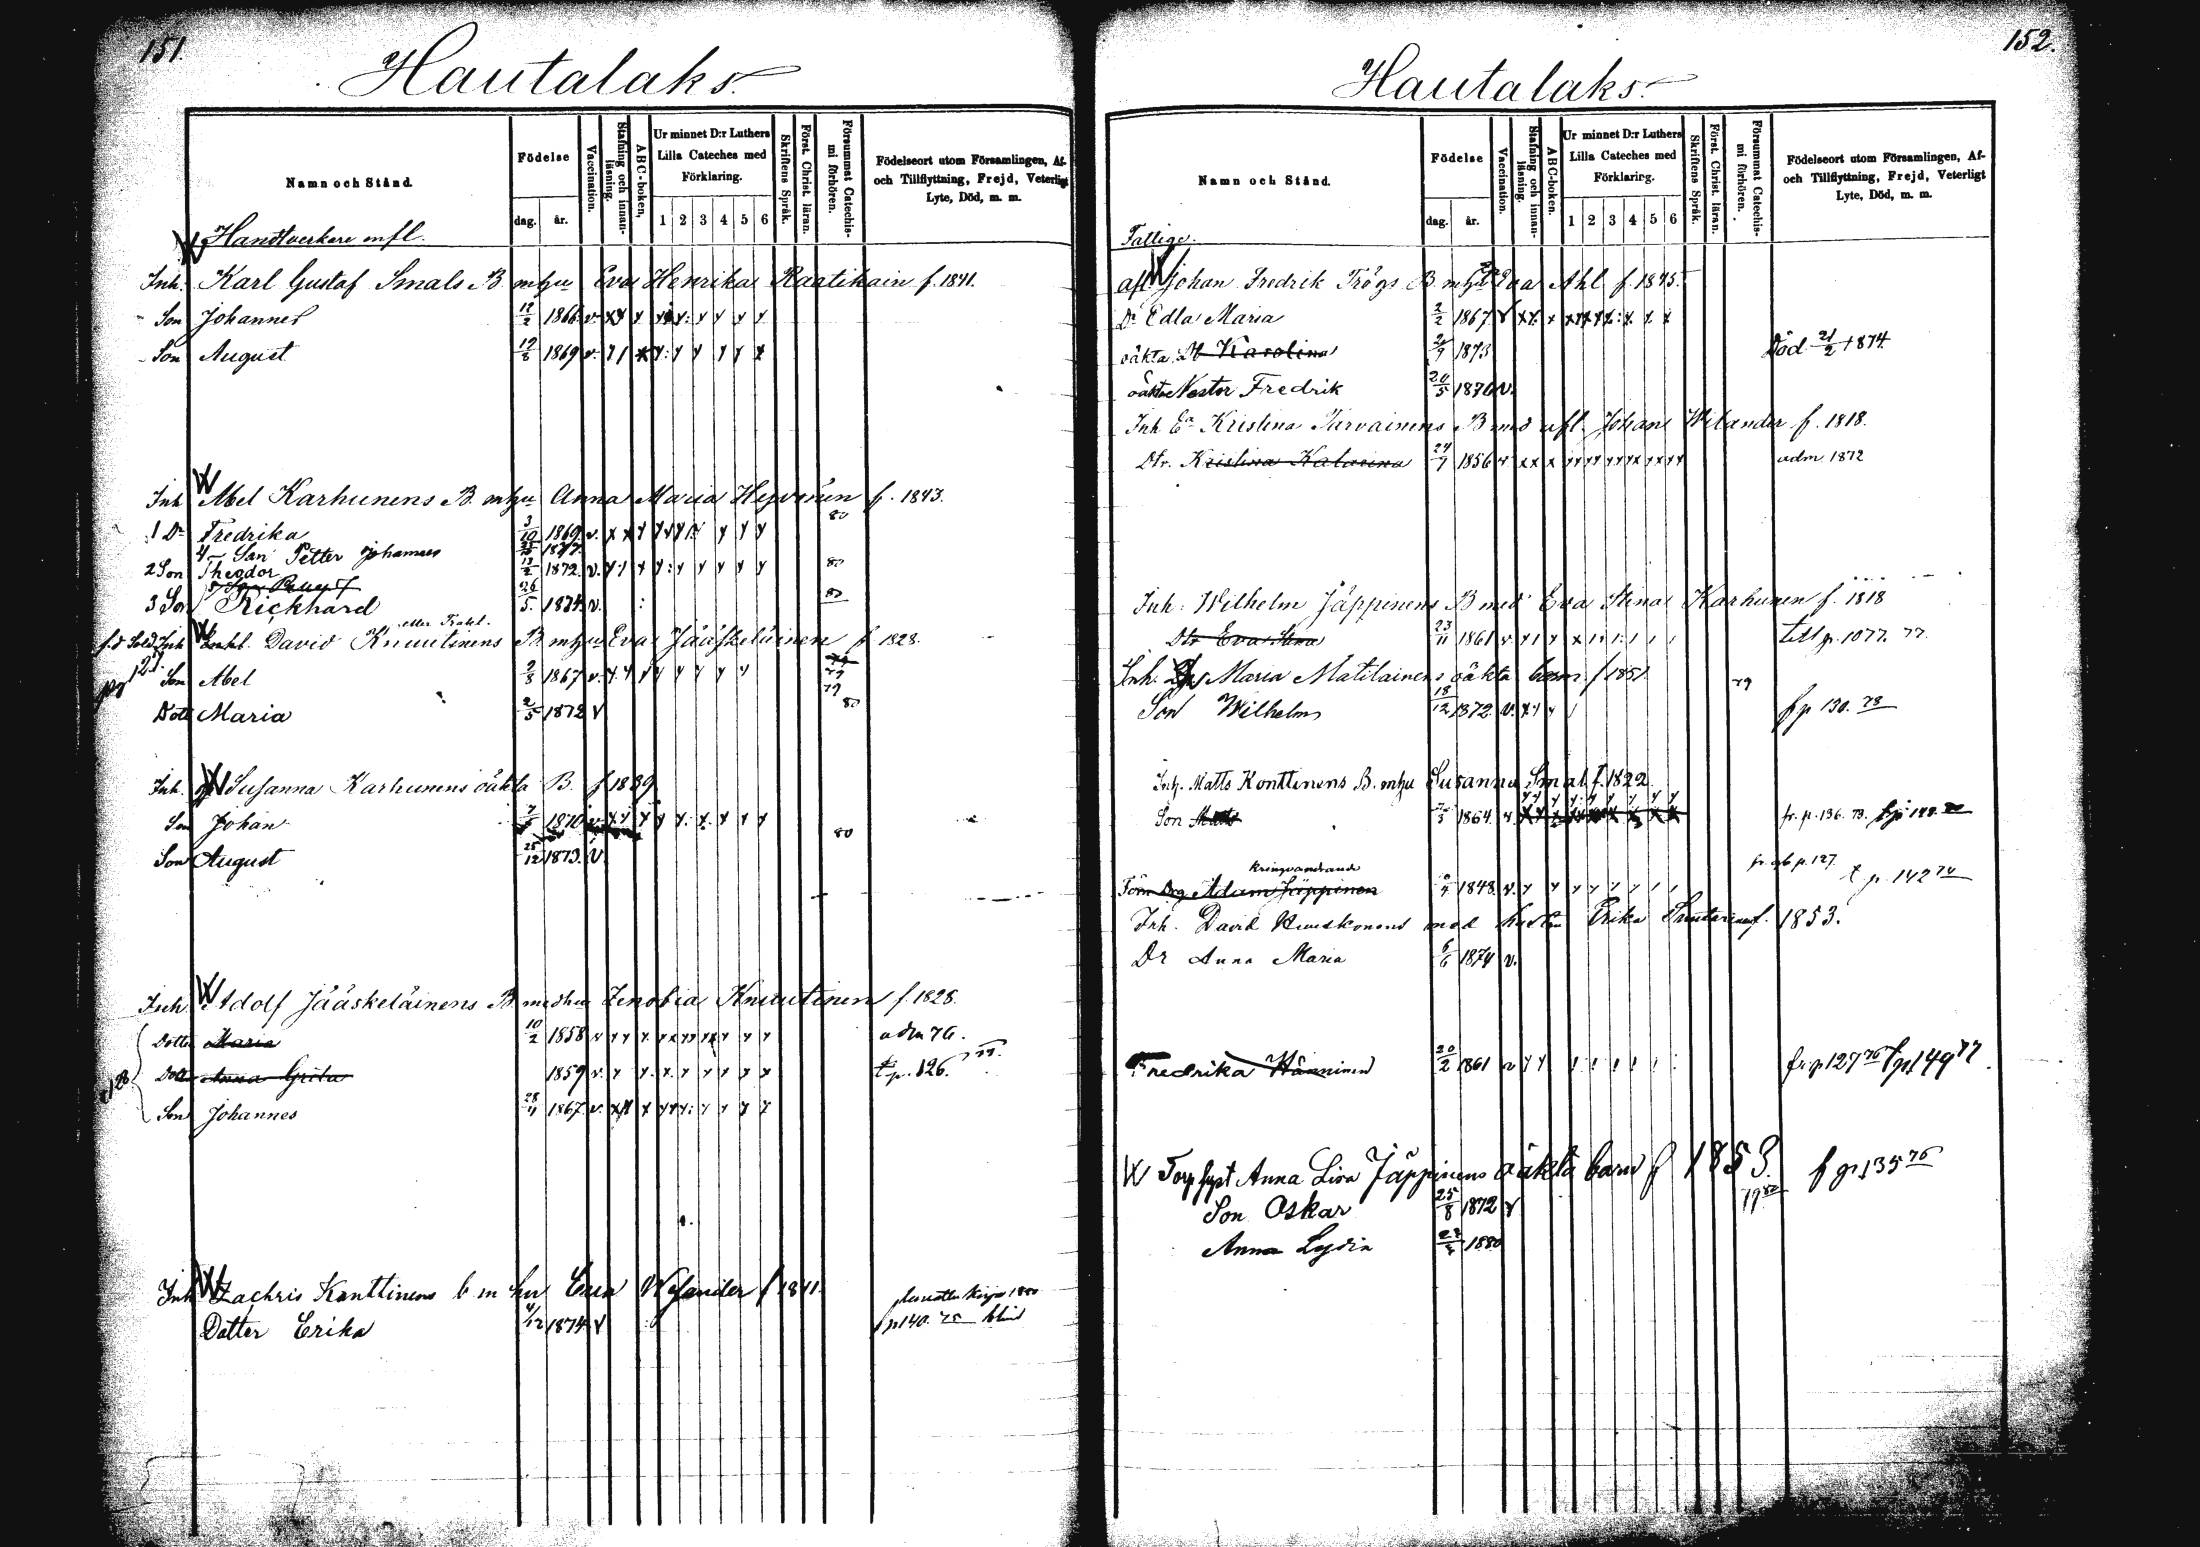 151.
Hautalaks.
Namn och Stånd.
Födelse
dag.
år.
Vaccination.
Stafning och innan-
läsning.
ABC-boken,
Ur minnet D:r Luthers
Lilla Cateches med
Förklaring.
1 2 3 4 5 6
Skriftens Språk.
Först. Christ. läran.
Försummat Catechis-
mi förhören.
Födelseort utom Församlingen, Af-
och Tillflyttning, Frejd, Veterligt
Lyte, Död, m. m.
Handtverkare mfl.
Inh. Karl Gustaf Smals B mhu Eva Henrika Raatikain f. 1841.
Son Johannes 12/2 1866 v.
Son August 12/8 1869 v.
Inh Abel Karhunens B. mhu Anna Maria Hyvönen f. 1843.
1 Dr Fredrika 3/10 1869 v. 80
4. Son Petter Johannes 1877.
2 Son Theodor 13/2 1872. v. 80
3 Son Rickhard 26/5 1874 v. 80
eller Trakt.
f.d. Sold. Inh David Knuutinens B mhu Eva Jääskeläinen f 1828.
Son Abel 2/3 1867 v. 79
Dott Maria 2/5 1872 v 80
Inh. Susanna Karhunens oäkta B. f 1839
Son Johan 1870 v. 80
Son August 25/12 1873. v.
Inh. Adolf Jääskeläinens B medhu Zenobia Knuutinen f. 1828.
Dotter Maria 10/2 1858 v adm 76.
Dotter Anna Greta 1859 v. t p. 126. 77.
128
Son Johannes 28/11 1867 v.
Inh Zachris Konttinens b m hu Eva Wesander f 1841.
Dotter Erika 4/12 1874 v f p 140. 75 blind
152.
Hautalaks.
Namn och Stånd.
Födelse
dag.
år.
Vaccination.
Stafning och innan-
läsning.
ABC-boken.
Ur minnet D:r Luthers
Lilla Cateches med
Förklaring.
1 2 3 4 5 6
Skriftens Språk.
Först. Christ. läran.
Försummat Catechis-
mi förhören.
Födelseort utom Församlingen, Af-
och Tillflyttning, Frejd, Veterligt
Lyte, Död, m. m.
Fattige.
afl Johan Fredrik Trögs B mhu Eva Ahl f. 1845.
Dr Edla Maria 2/2 1867 v
oäkta Dt Karolina 1873 Död 21/2 1874.
oäkta Nestor Fredrik 20/5 1876 v.
Inh Ea Kristina Turvainens B med afl. Johan Wilander f. 1818.
Dtr. Kristina Katarina 24/7 1856 v adm 1872
Inh. Wilhelm Jäppinens B med Eva Stina Karhunen f. 1818
Dtr Eva Stina 23/11 1861 v till p. 1077. 77.
Inh. Maria Matilainens oäkta barn f 1851 79
Son Wilhelm 18/12 1872. v. f p 130. 78
Inh. Matts Konttinens B. mhu Susanna Smal f. 1822.
Son Matts 1864. v. fr. p. 136. 73.
kringvandrande
fr. p. 127.
Adam Jäppinen 1848. v. t p. 142 74
Inh. David Huuskonens med hustru Erika f. 1853.
Dr Anna Maria 6/6 1874 v.
Fredrika Hänninen 20/2 1861 v fr p 127 76 t p 149 77.
Anna Lisa Jäppinens oäkta barn f 1853. f p 135 76
Son Oskar 25/8 1872 v 79 80
Anna Lydia 1880